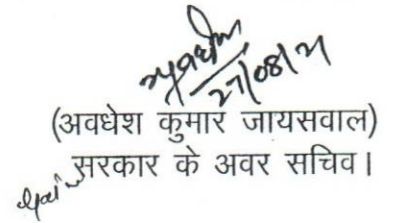 27/08/21
(अवधेश कुमार जायसवाल)
सरकार के अवर सचिव।